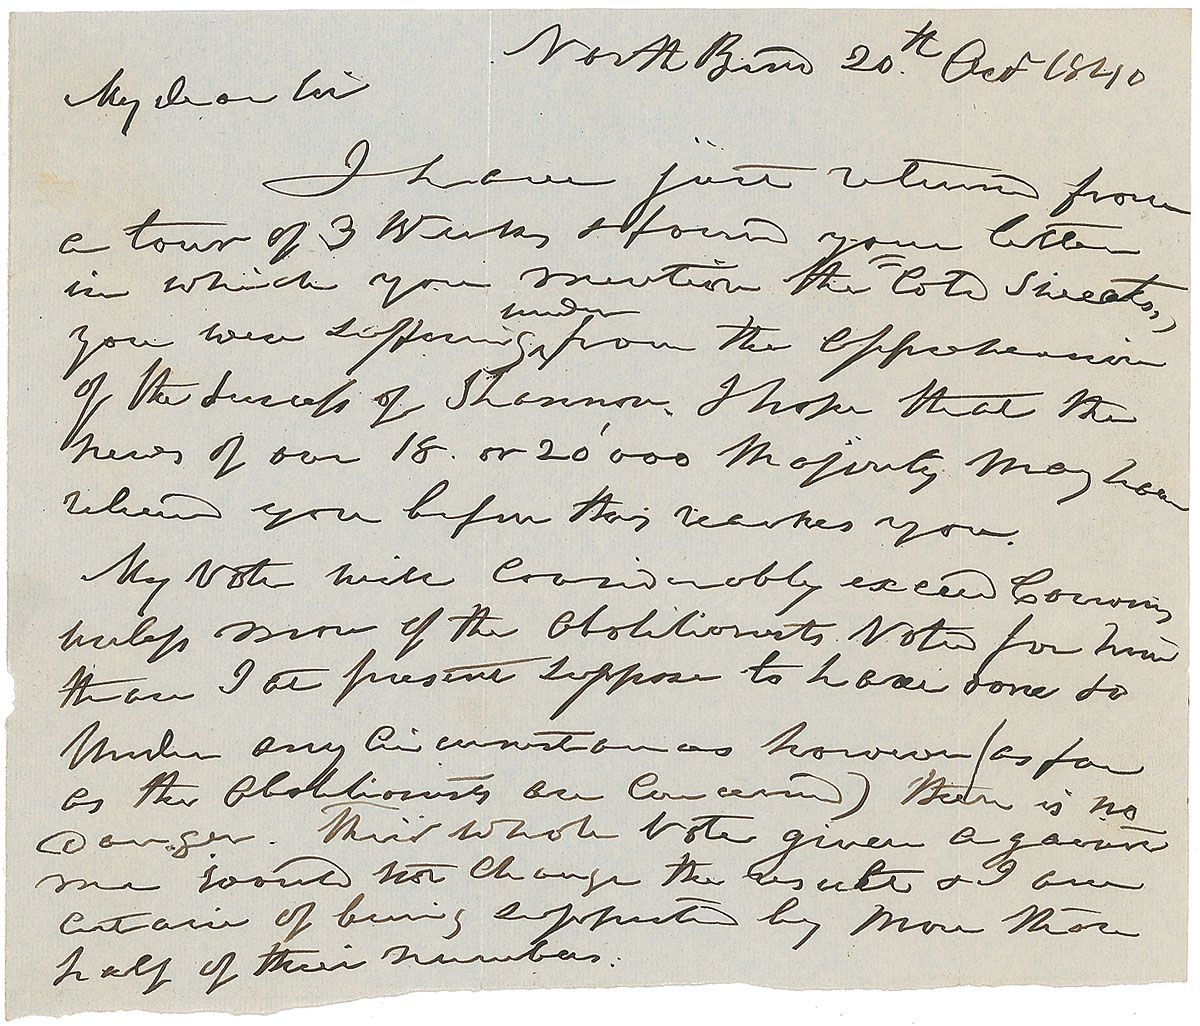 North Bend 20.th Oct 1840
My dear Sir
I have just returned from
a tour of 3 Weeks & found your letter
in which you mention the "Cold Sweats,"
you were suffering under from the apprehension
of the success of Shannon. I hope that the
news of our 18. or 20'000 Majority May have
relieved you before this reaches you.
My Vote will Considerably exceed Corwins
unless more of the Abolitionists Voted for him
than I at present suppose to have done so
Under any Circumstances however (as far
as the Abolitionists are Concerned) There is no
danger. Their whole Vote given against
me would not Change the result & I am
certain of being supported by More than
half of their number.